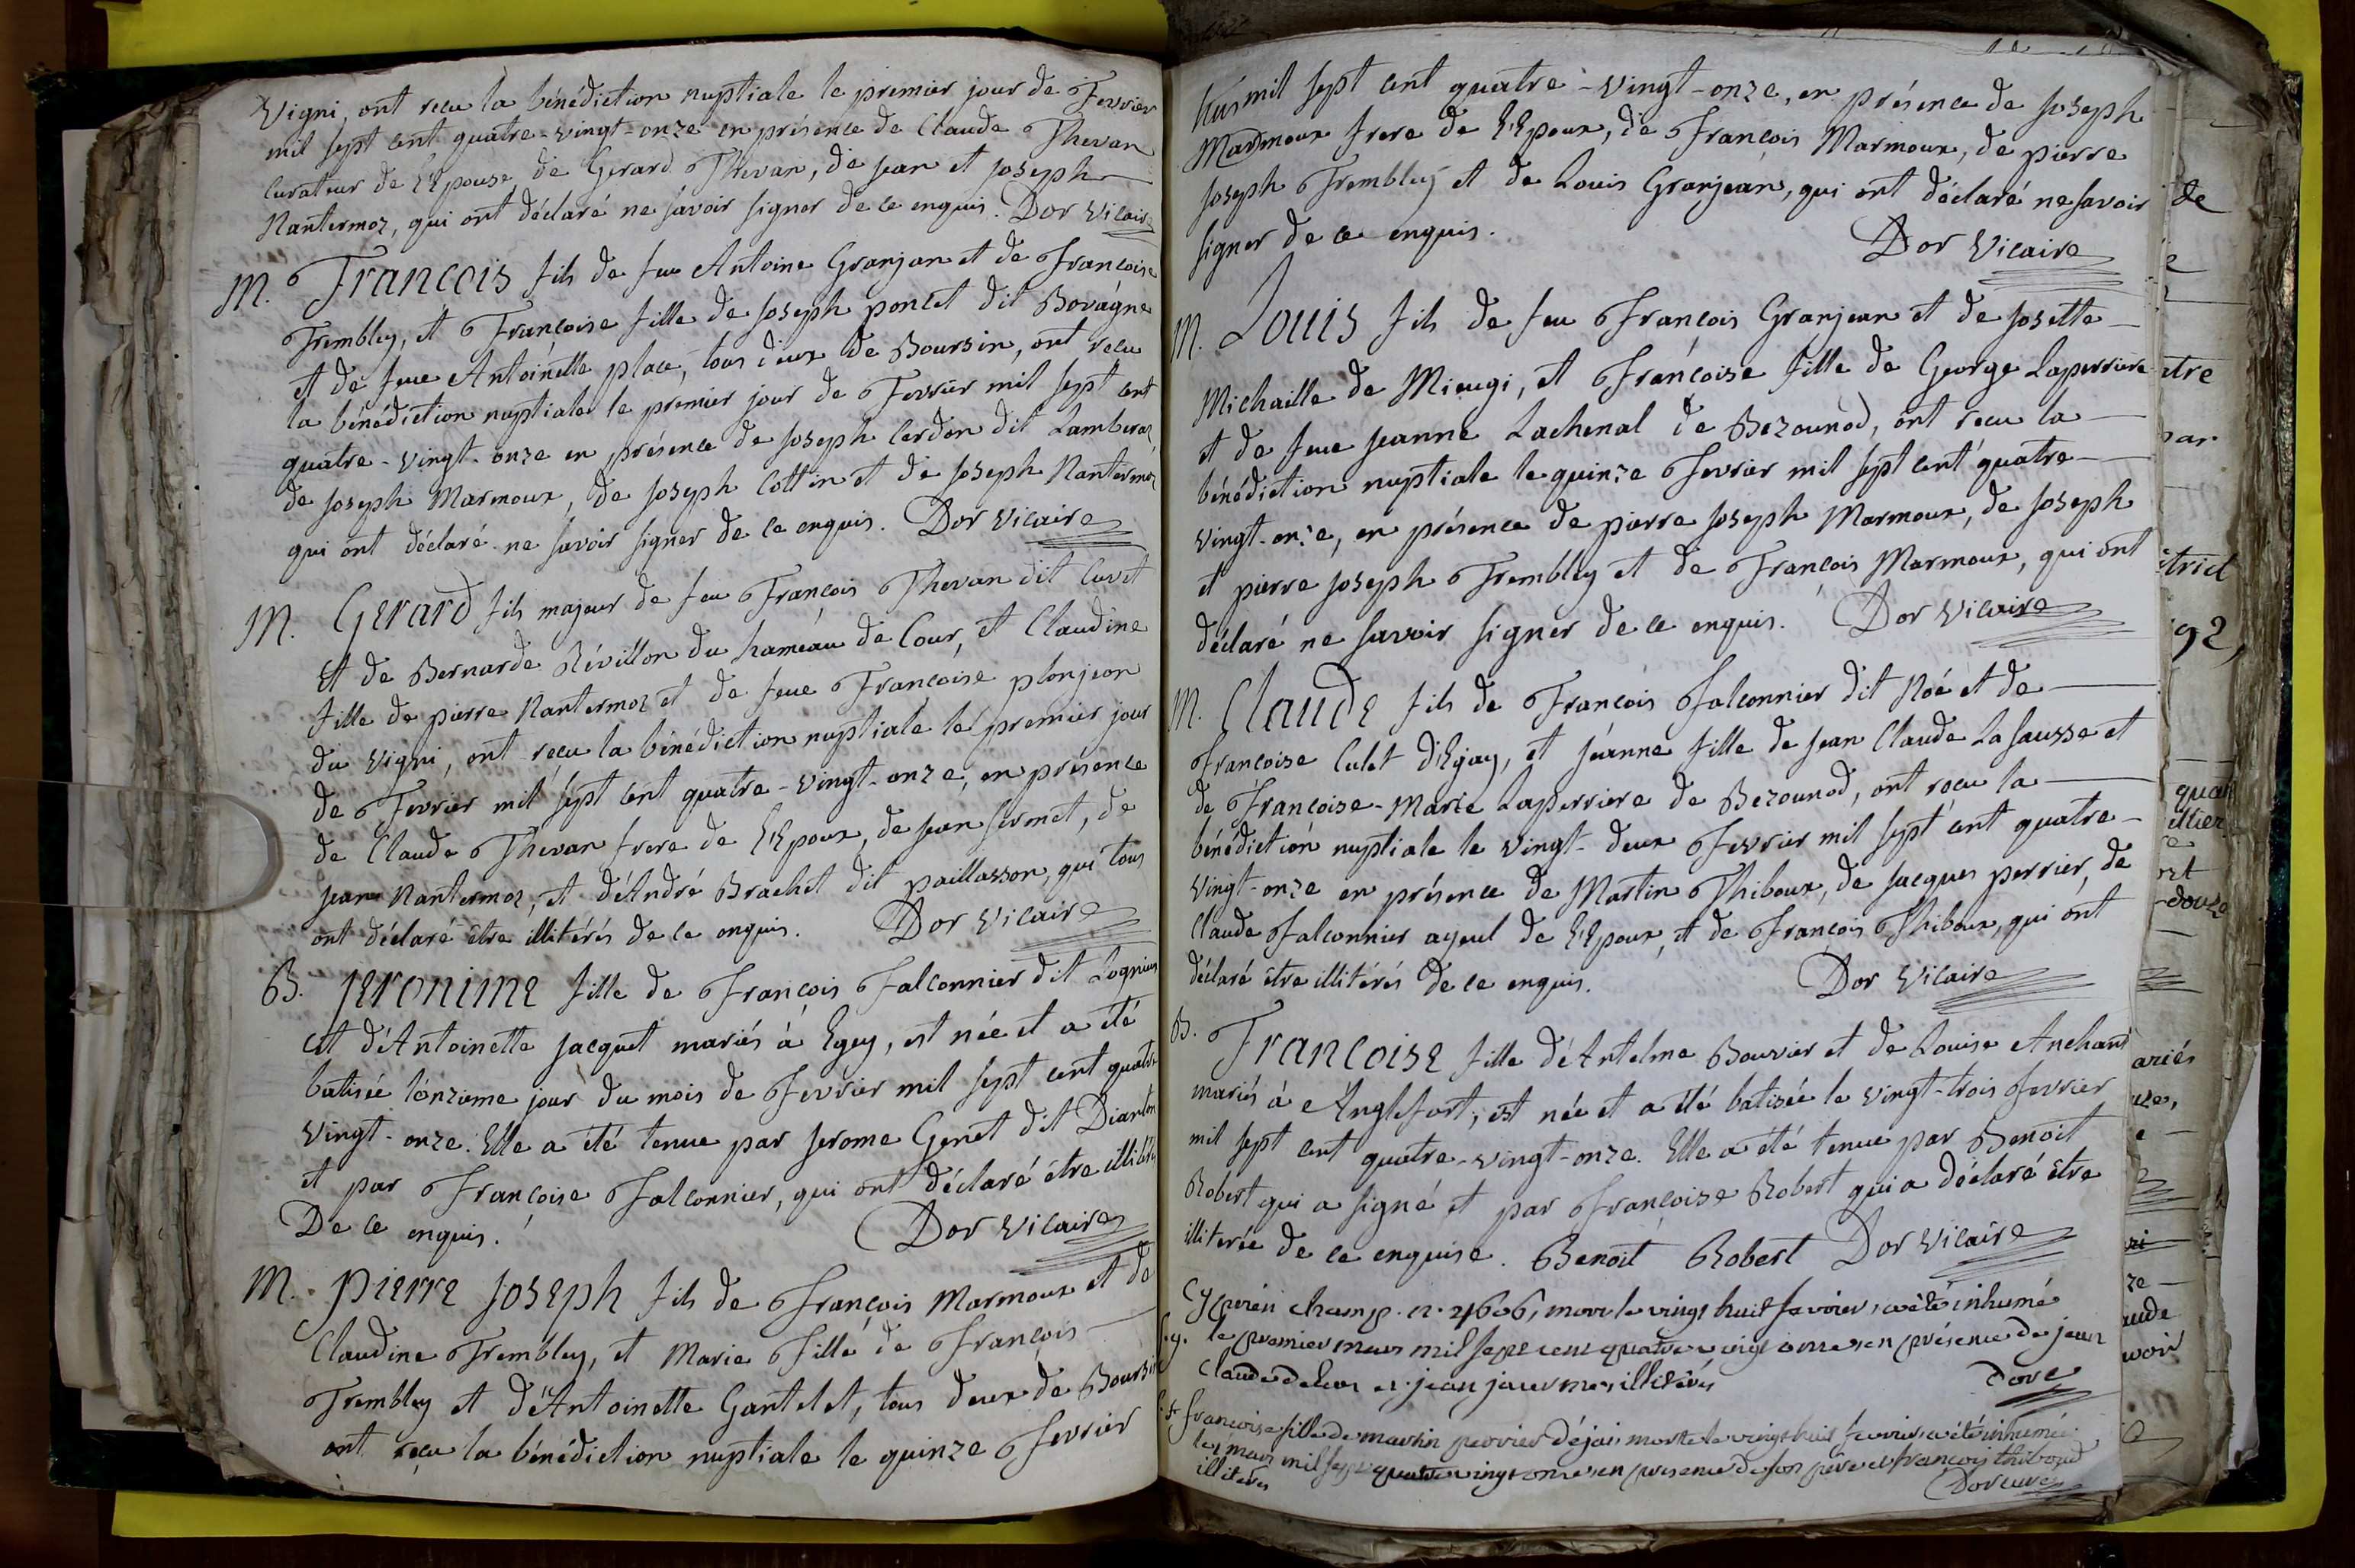 Vigni, ont reçu la bénédiction nuptiale le premier jour de Fevrier
mil sept cent quatre-vingt-onze en présence de Claude Thevan
Curateur de l'Epouse de Gerard Thevan, de jean et joseph
Nantermoz, qui ont déclaré ne savoir signer de ce enquis. Dor Vicaire
M. Francois fils de feu Antoine Granjan et de Francoise
Trembley, et Françoise fille de Joseph poncet dit Bovagne
et de feue Antoinette place, tous deux de Boursin, ont reçu
la bénédiction nuptiale le premier jour de Fevrier mil sept cent
quatre-vingt-onze en présence de joseph Cerdon dit Lamberoz
de joseph Marmoux, de joseph Cottin et de joseph Nantermoz
qui ont déclaré ne savoir signer de ce enquis. Dor Vicaire
M. Gerard fils majeur de feu François Thevan dit Cuvet
et de Bernarde Révillon du hameau de Cour, et Claudine
fille de pierre Nantermoz et de feue Françoise plonjeon
du Vigni, ont reçu la bénédiction nuptiale le premier jour
de Fevrier mil sept cent quatre-vingt-onze, en présence
de Claude Thévan frere de l'Epoux, de jean fermet, de
jean Nantermoz, et d'André Brachet dit paillasson, qui tous
ont déclaré être illitérés de ce enquis. Dor Vicaire
B. jeronime fille de François Falconnier dit Lognius
et d'Antoinette jacquet mariés à Egey, est née et a été
batisée l'onzieme jour du mois de Fevrier mil sept cent quatre
vingt-onze. Elle a été tenue par jerome Genet dit Dianton
et par Françoise Falconnier, qui ont déclaré être illitérés
De ce enquis. Dor Vicaire
M. pierre joseph fils de François Marmoux et de
Claudine Trembley, et Marie fille de François
Trembley et d'Antoinette Gantelet, tous deux de Boursin
ont reçu la bénédiction nuptiale le quinze Fevrier
mil sept cent quatre-vingt-onze, en présence de joseph
Marmoux frere de l'Epoux, de François Marmoux, de pierre
joseph Trembley et de Louis Granjean, qui ont déclaré ne savoir
signer de ce enquis. Dor Vicaire
M. Louis fils de feu François Granjean et de josette
Michaille de Mieugi, et Françoise fille de George Laperriere
et de feue jeanne Lachenal de Bezounod, ont reçu la
bénédiction nuptiale le quinze Fevrier mil sept cent quatre
vingt-onze, en présence de pierre joseph Marmoux, de joseph
et pierre joseph Trembley et de François Marmoux, qui ont
déclaré ne savoir signer de ce enquis. Dor Vicaire
M. Claude fils de François Falconnier dit Noé et de
Françoise Culet d'Egay, et jeanne fille de jean Claude Lasausse et
de Françoise-Marie Laperriere de Bezounod, ont reçu la
bénédiction nuptiale le vingt-deux Fevrier mil sept cent quatre-
vingt-onze en présence de Martin Thiboux, de jacques perrier, de
Claude Falconnier ayeul de l'Epoux, et de François Thiboux, qui ont
déclaré être illitérés de ce enquis. Dor Vicaire
B. Francoise fille d'Antelme Bouvier et de Louise Anchand
mariés à Anglefort, est née et a été batisée le vingt-trois Fevrier
mil sept cent quatre-vingt-onze. Elle a été tenue par Benoit
Robert qui a signé et par Françoise Robert qui a déclaré être
illiterée de ce enquise. Benoit Robert Dor Vicaire
champ. n. mort le vingt huit fevrier, a été inhumé
le premier mars mil sept cent quatre vingt onze, en présence de jean
Claude et jean illitérés Dor
francoise fille de martin perrier Déjai morte le vingt huit fevrier, a été inhumée
mars mil sept quatre vingt onze en presence de son père et francois thiboud
illiterés Dor curé
de
tre
par
trict
92,
douze
ariés
aude